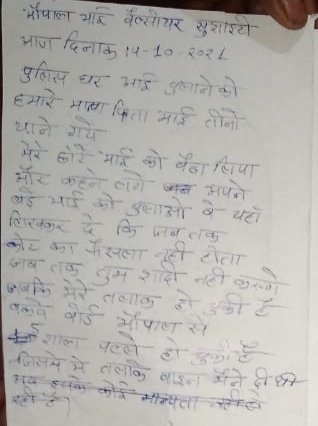 भोपाल भाई वेल्फेयर सुसाइटी
आज दिनांक 14-10-2021
पुलिस घर आई बुलाने को
हमारे माता पिता भाई तीनो
थाने गये
मेरे छोटे भाई को बैठा लिया
और कहने लगे अपने
बड़े भाई को बुलाओ वे यहाँ
लिखकर दे कि जब तक
कोर्ट का फैसला नही होता
जब तक तुम शादी नही करोगे
जबकि मेरे तलाक हो चुकी है
वक्फ बोर्ड भोपाल से
5 साल पहले हो चुकी है
जिसमे मे तलाके बाइन मैने दी थी
कोई मान्यता